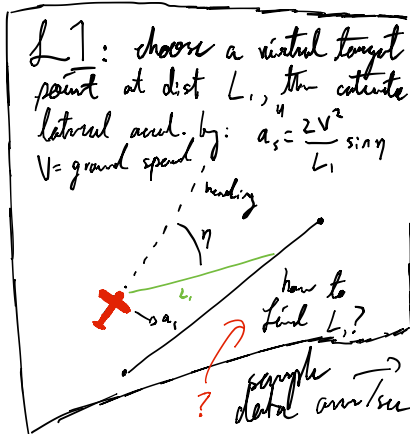 L1: choose a virtual target
point at dist L₁, then calculate
lateral accel. by: aₛ = 2V²/L₁ sin η
V= ground speed
heading
η
L₁
aₛ
how to
find L₁?
?
sample
data